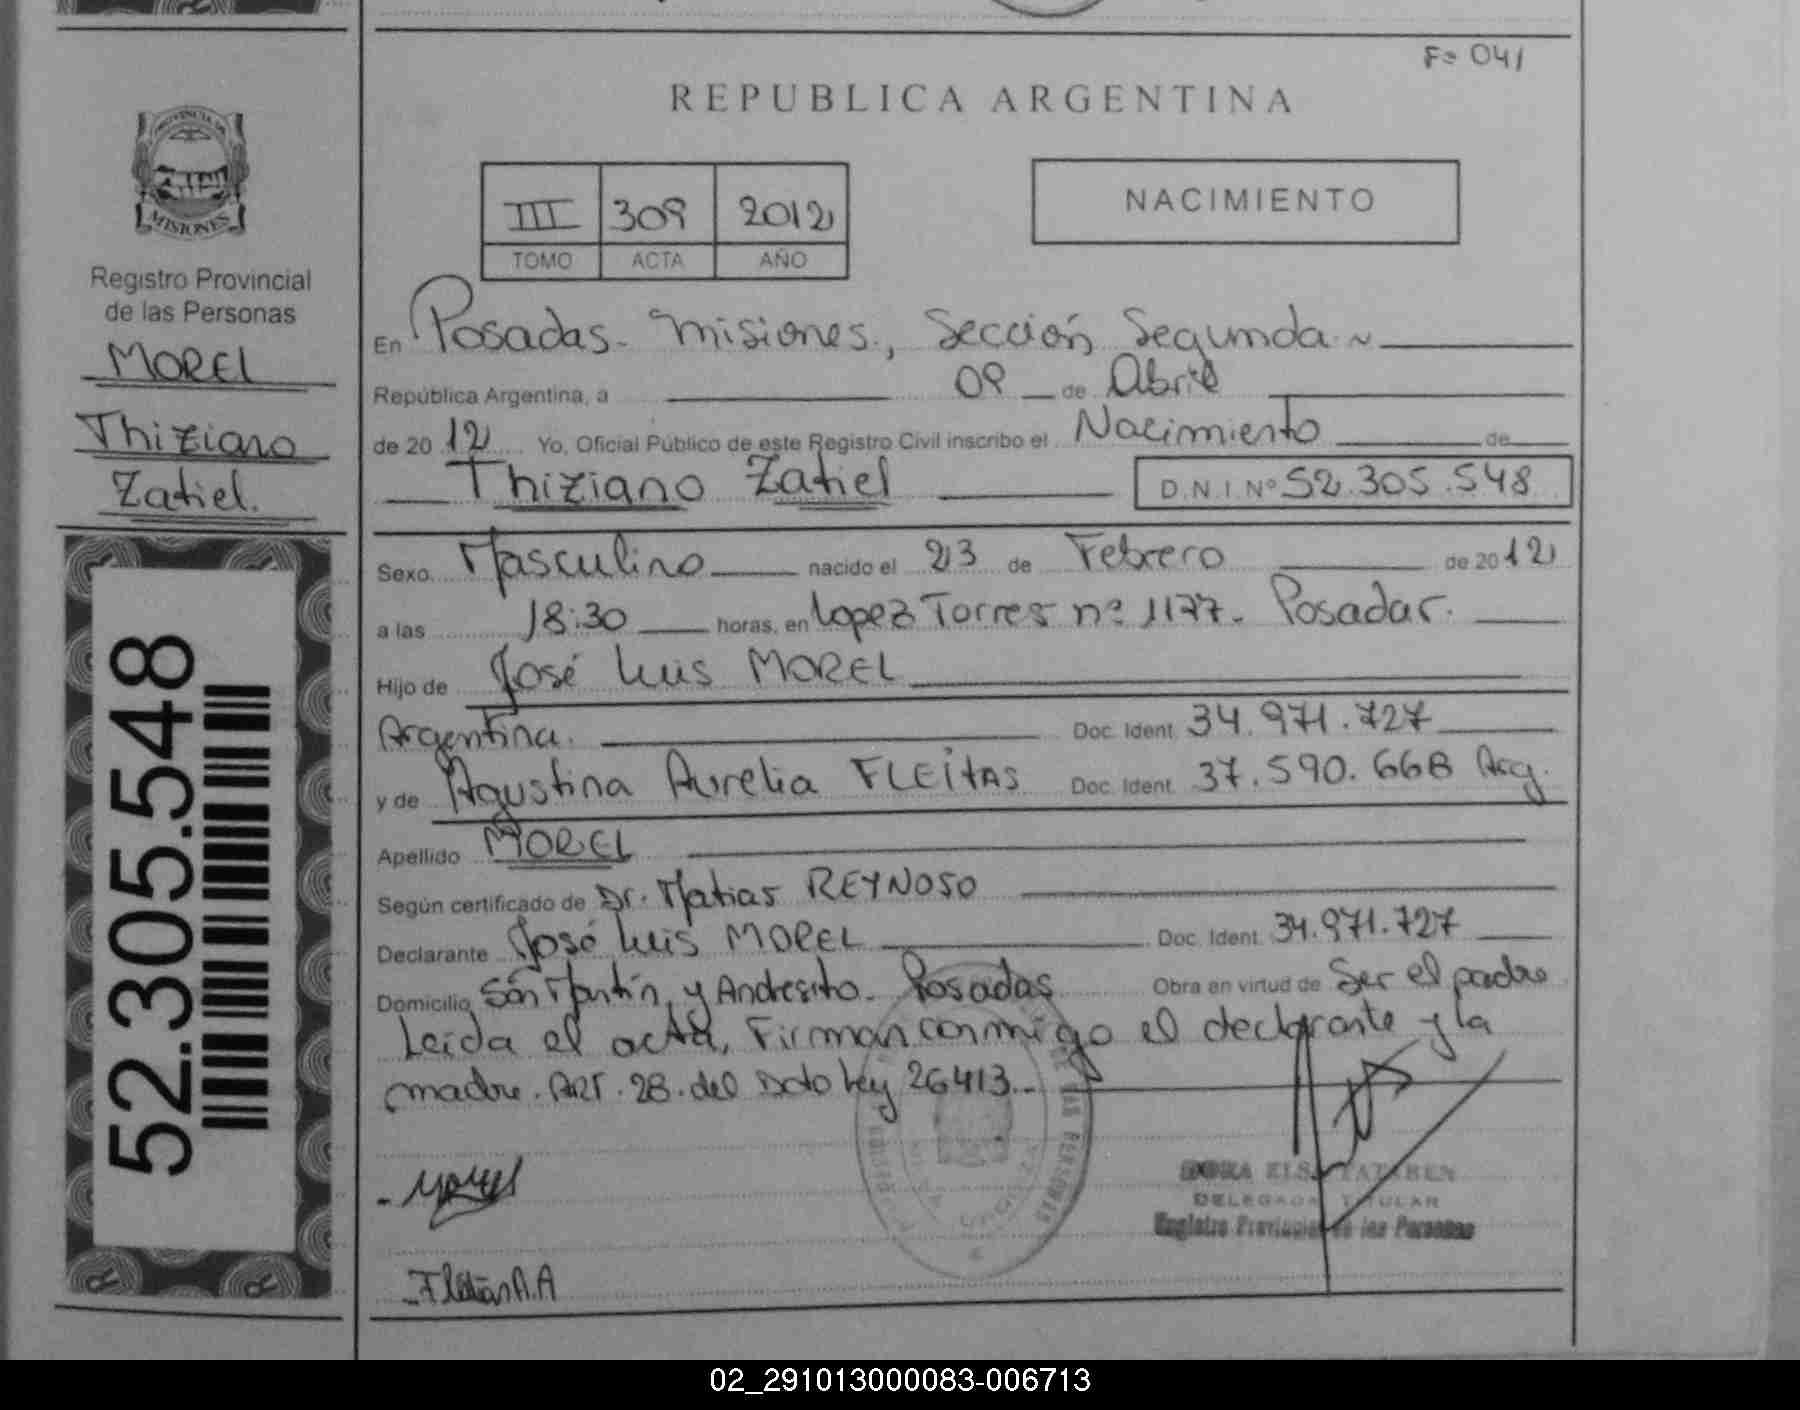 F= 041
REPUBLICA ARGENTINA
PROVINCIA DE
MISIONES
Registro Provincial
de las Personas
MOREL
Thiziano
Zatiel.
52.305.548
III 309 2012
TOMO ACTA AÑO
NACIMIENTO
En Posadas- Misiones, Sección Segunda
República Argentina, a 09 de Abril
de 20 12 Yo, Oficial Público de este Registro Civil inscribo el Nacimiento de
Thiziano Zatiel D.N.I. Nº 52.305.548
Sexo Masculino nacido el 23 de Febrero de 20 12
a las 18:30 horas, en Lopez Torres nº 1177. Posadas.
Hijo de José Luis MOREL
Argentina. Doc. Ident. 34.971.727
y de Agustina Aurelia FLEITAS Doc. Ident. 37.590.668 Arg.
Apellido MOREL
Según certificado de Dr. Matias REYNOSO
Declarante José Luis MOREL Doc. Ident. 34.971.727
Domicilio San Martín y Andresito- Posadas Obra en virtud de Ser el padre
Leída el acta, Firman conmigo el declarante y la
madre. ART. 28. del Dcto Ley 26413.-
Morel
Fleitas A.A
DELEGADA TITULAR
Registro Provincial de las Personas
02_291013000083-006713